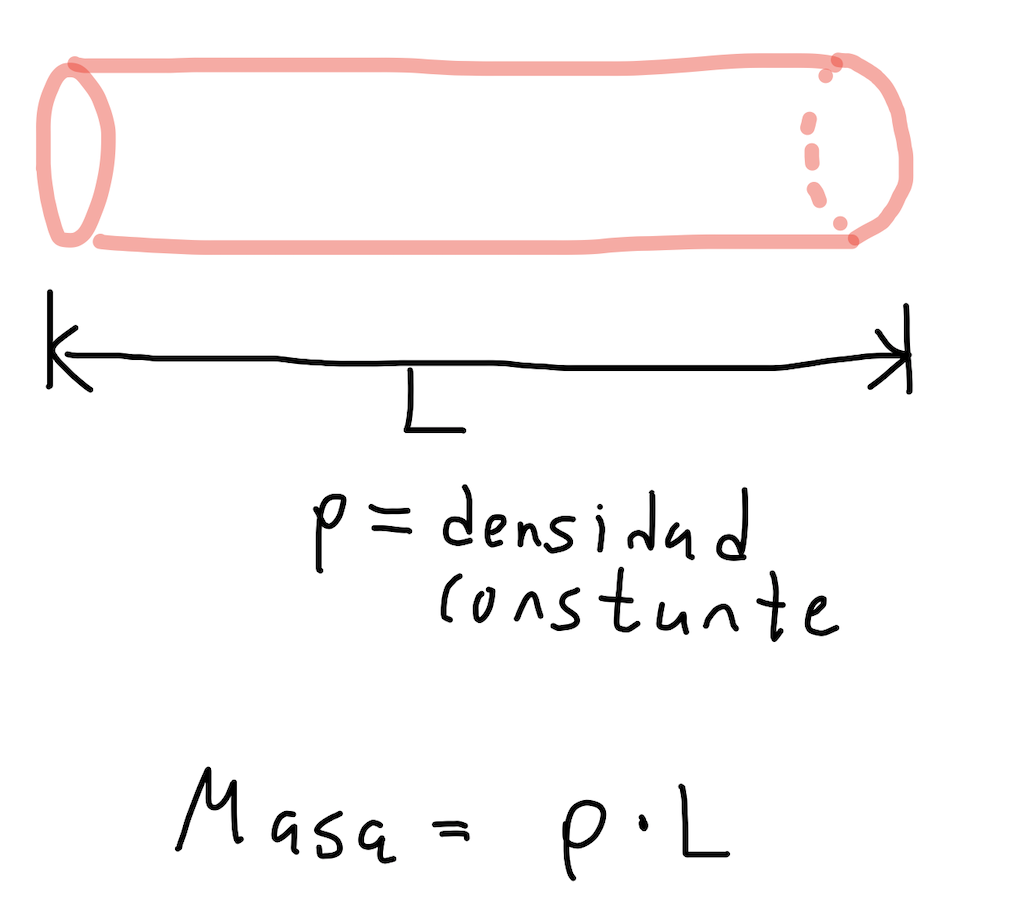 L
ρ = densidad
constante
Masa = ρ · L